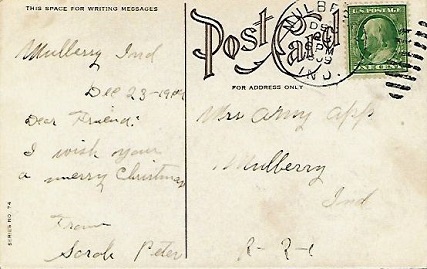 THIS SPACE FOR WRITING MESSAGES
Mulberry Ind
Dec 23-1909
Dear Friend:
I wish your
a merry Christmas
From
Sarah Peter
SERIES NO. 74
Post Card
FOR ADDRESS ONLY
MULBE
DE
PM
1909
IND.
U.S. POSTAGE
ONE CENT
Mrs Amy App
Mulberry
Ind
R-R-1